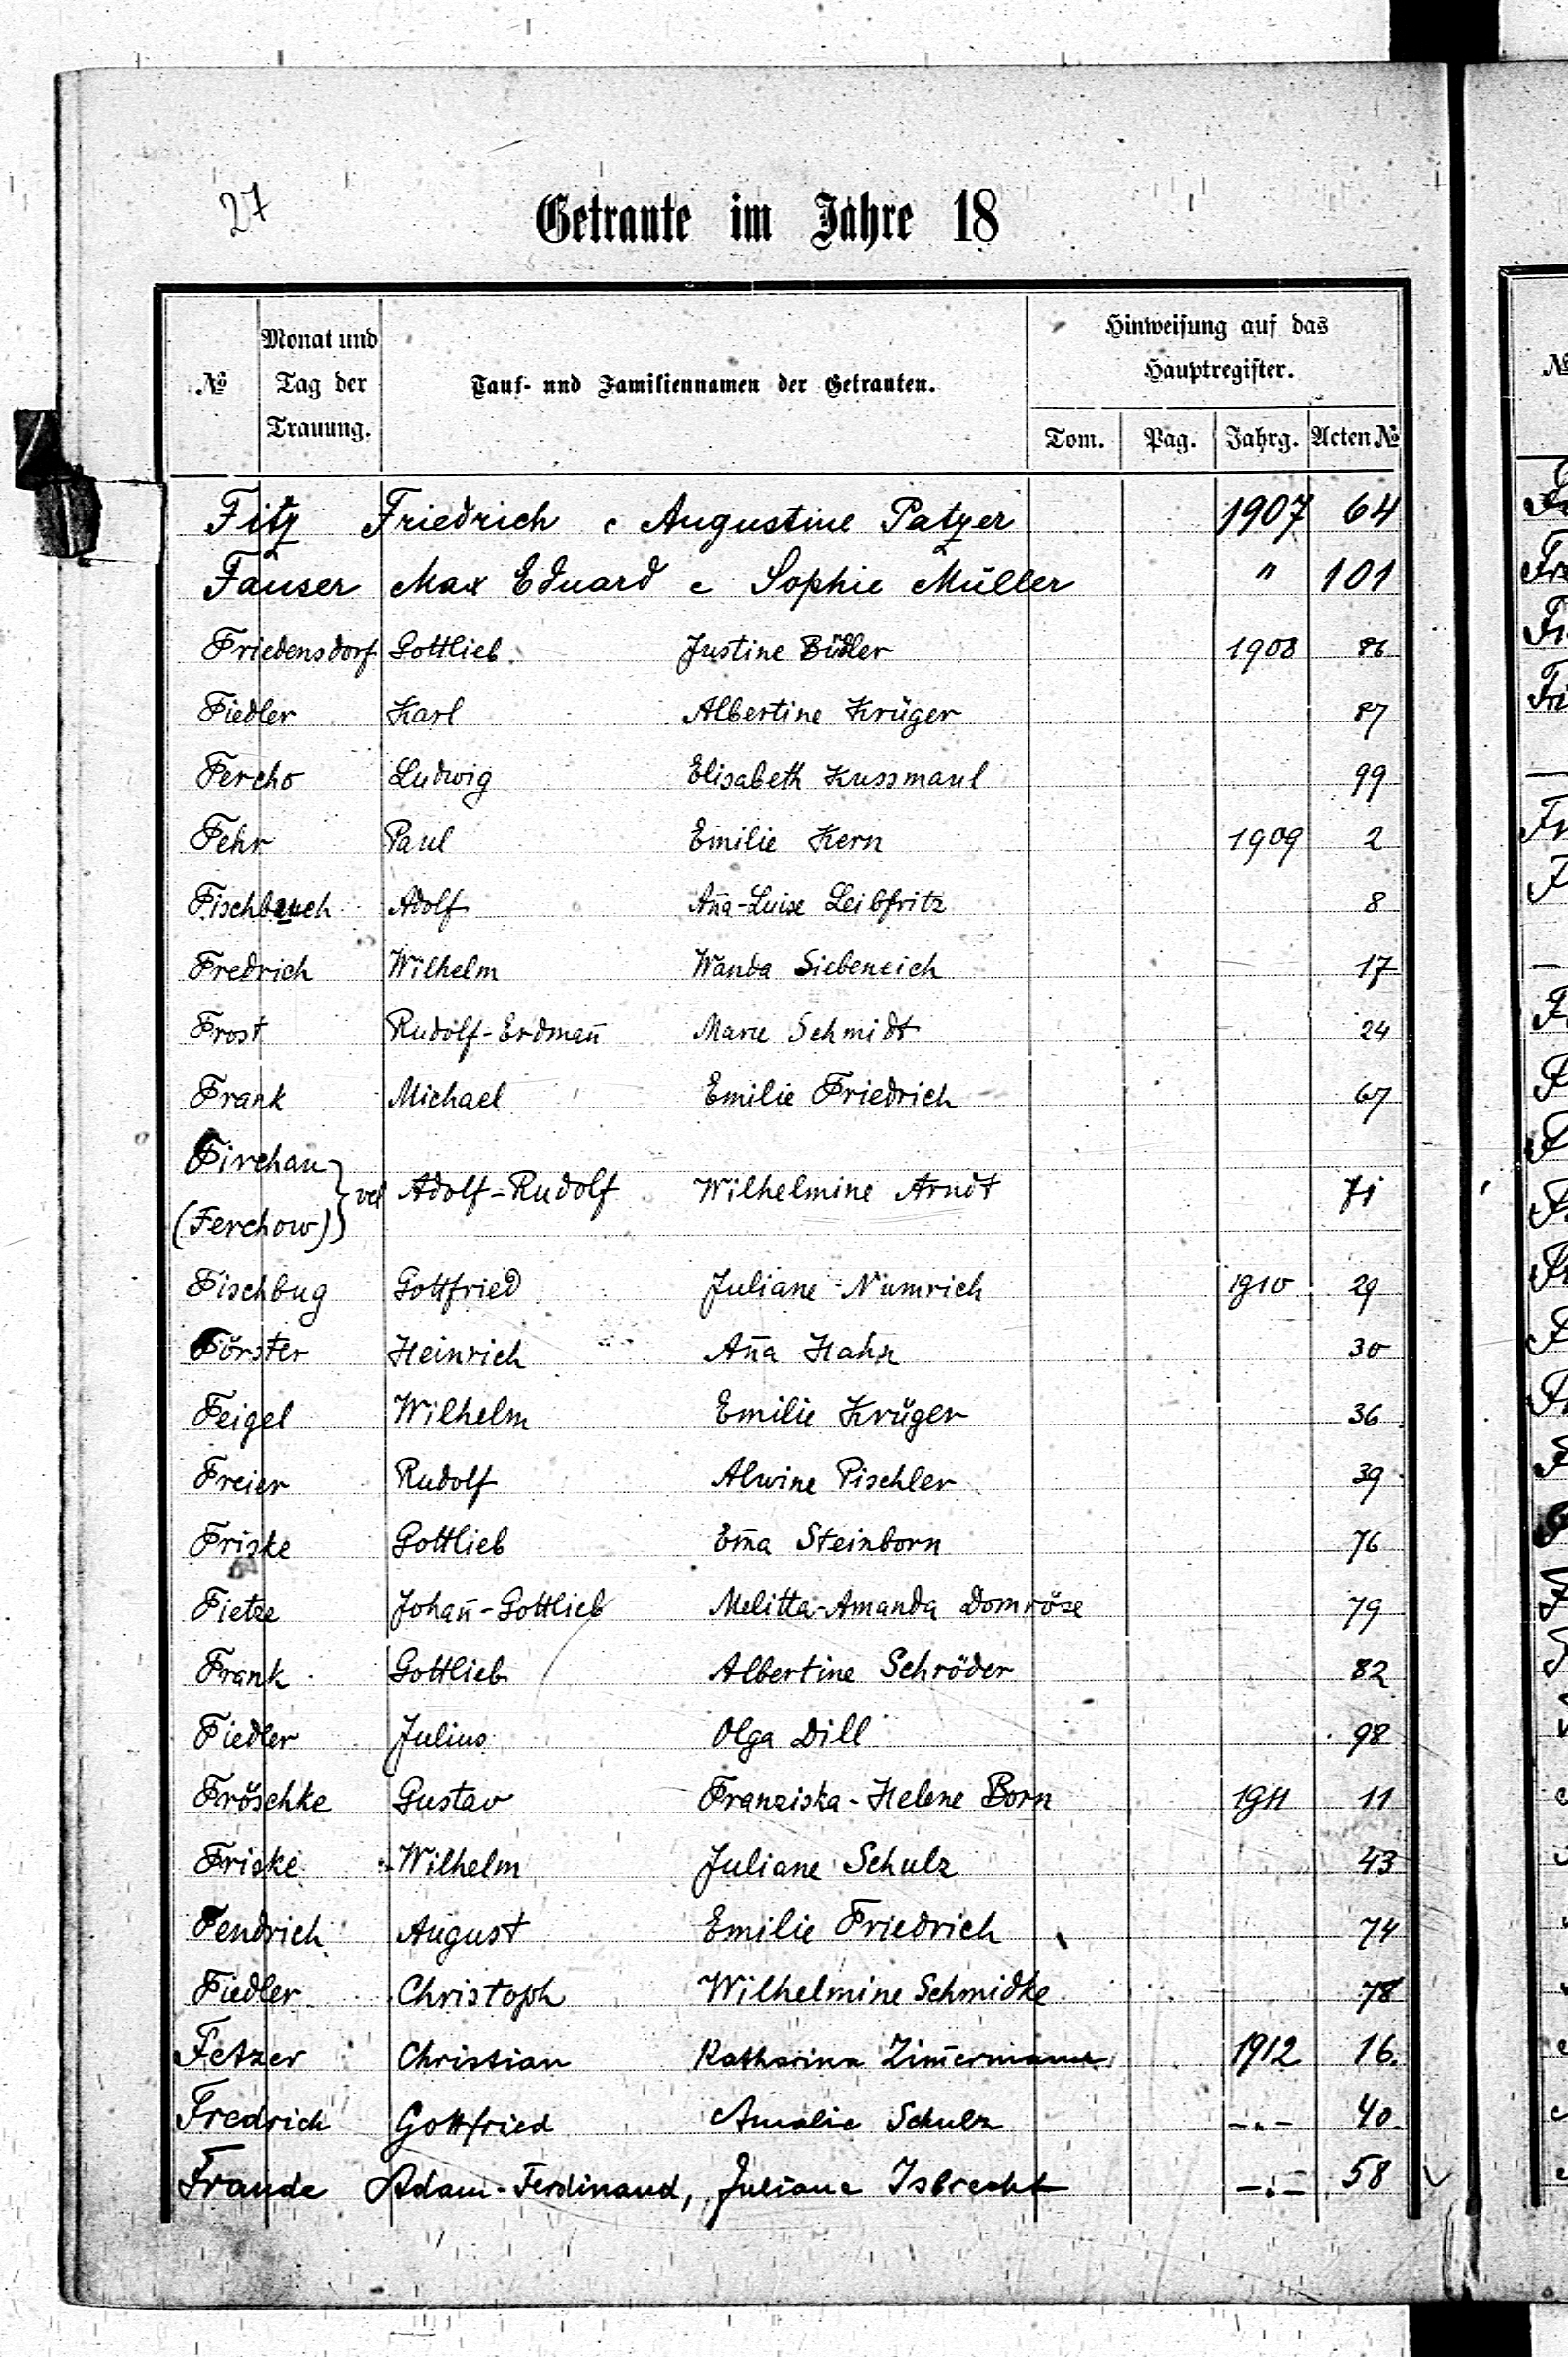 27
Getraute im Jahre 18
№ Monat und Tag der Trauung. Tauf- und Familiennamen der Getrauten. Hinweisung auf das Hauptregister.
Tom. Pag. Jahrg. Acten №
Fitz Friedrich c Augustine Patzer 1907 64
Fauser Max Eduard c Sophie Müller " 101
Friedensdorf Gottlieb Justine Büdler 1908 86
Fiedler Karl Albertine Krüger 87
Fercho Ludwig Elisabeth Kussmaul 99
Fehr Paul Emilie Kern 1909 2
Fischbuch Adolf An̄a-Luise Leibfritz 8
Fredrich Wilhelm Wanda Siebeneich 17
Frost Rudolf-Erdman̄ Marie Schmidt 24
Frank Michael Emilie Friedrich 67
Firchau
(Ferchow) } vel Adolf-Rudolf Wilhelmine Arndt 71
Fischbug Gottfried Juliane Numrich 1910 29
Förster Heinrich An̄a Hahn 30
Feigel Wilhelm Emilie Krüger 36
Freier Rudolf Alwine Pischler 39
Friske Gottlieb Em̄a Steinborn 76
Fietze Johan̄-Gottlieb Melitta-Amanda Domröse 79
Frank Gottlieb Albertine Schröder 82
Fiedler Julius Olga Dill 98
Fröschke Gustav Franziska-Helene Born 1911 11
Friske Wilhelm Juliane Schulz 43
Fendrich August Emilie Friedrich 74
Fiedler Christoph Wilhelmine Schmidke 78
Fetzer Christian Katharina Zim̄ermann 1912 16.
Fredrich Gottfried Amalie Schulz -"- 40.
Fraude Adam-Ferdinand, Juliane Isbrecht -"- 58